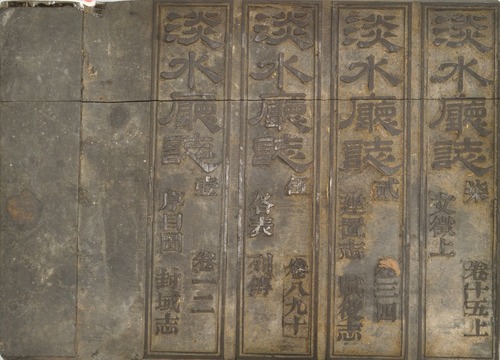 淡水廳誌
柒
卷十五上
文徵上
淡水廳誌
貳
卷三四
建置志 賦役志
淡水廳誌
卷八九十
各表 列傳
淡水廳誌
壹
卷一二
序目圖 封域志